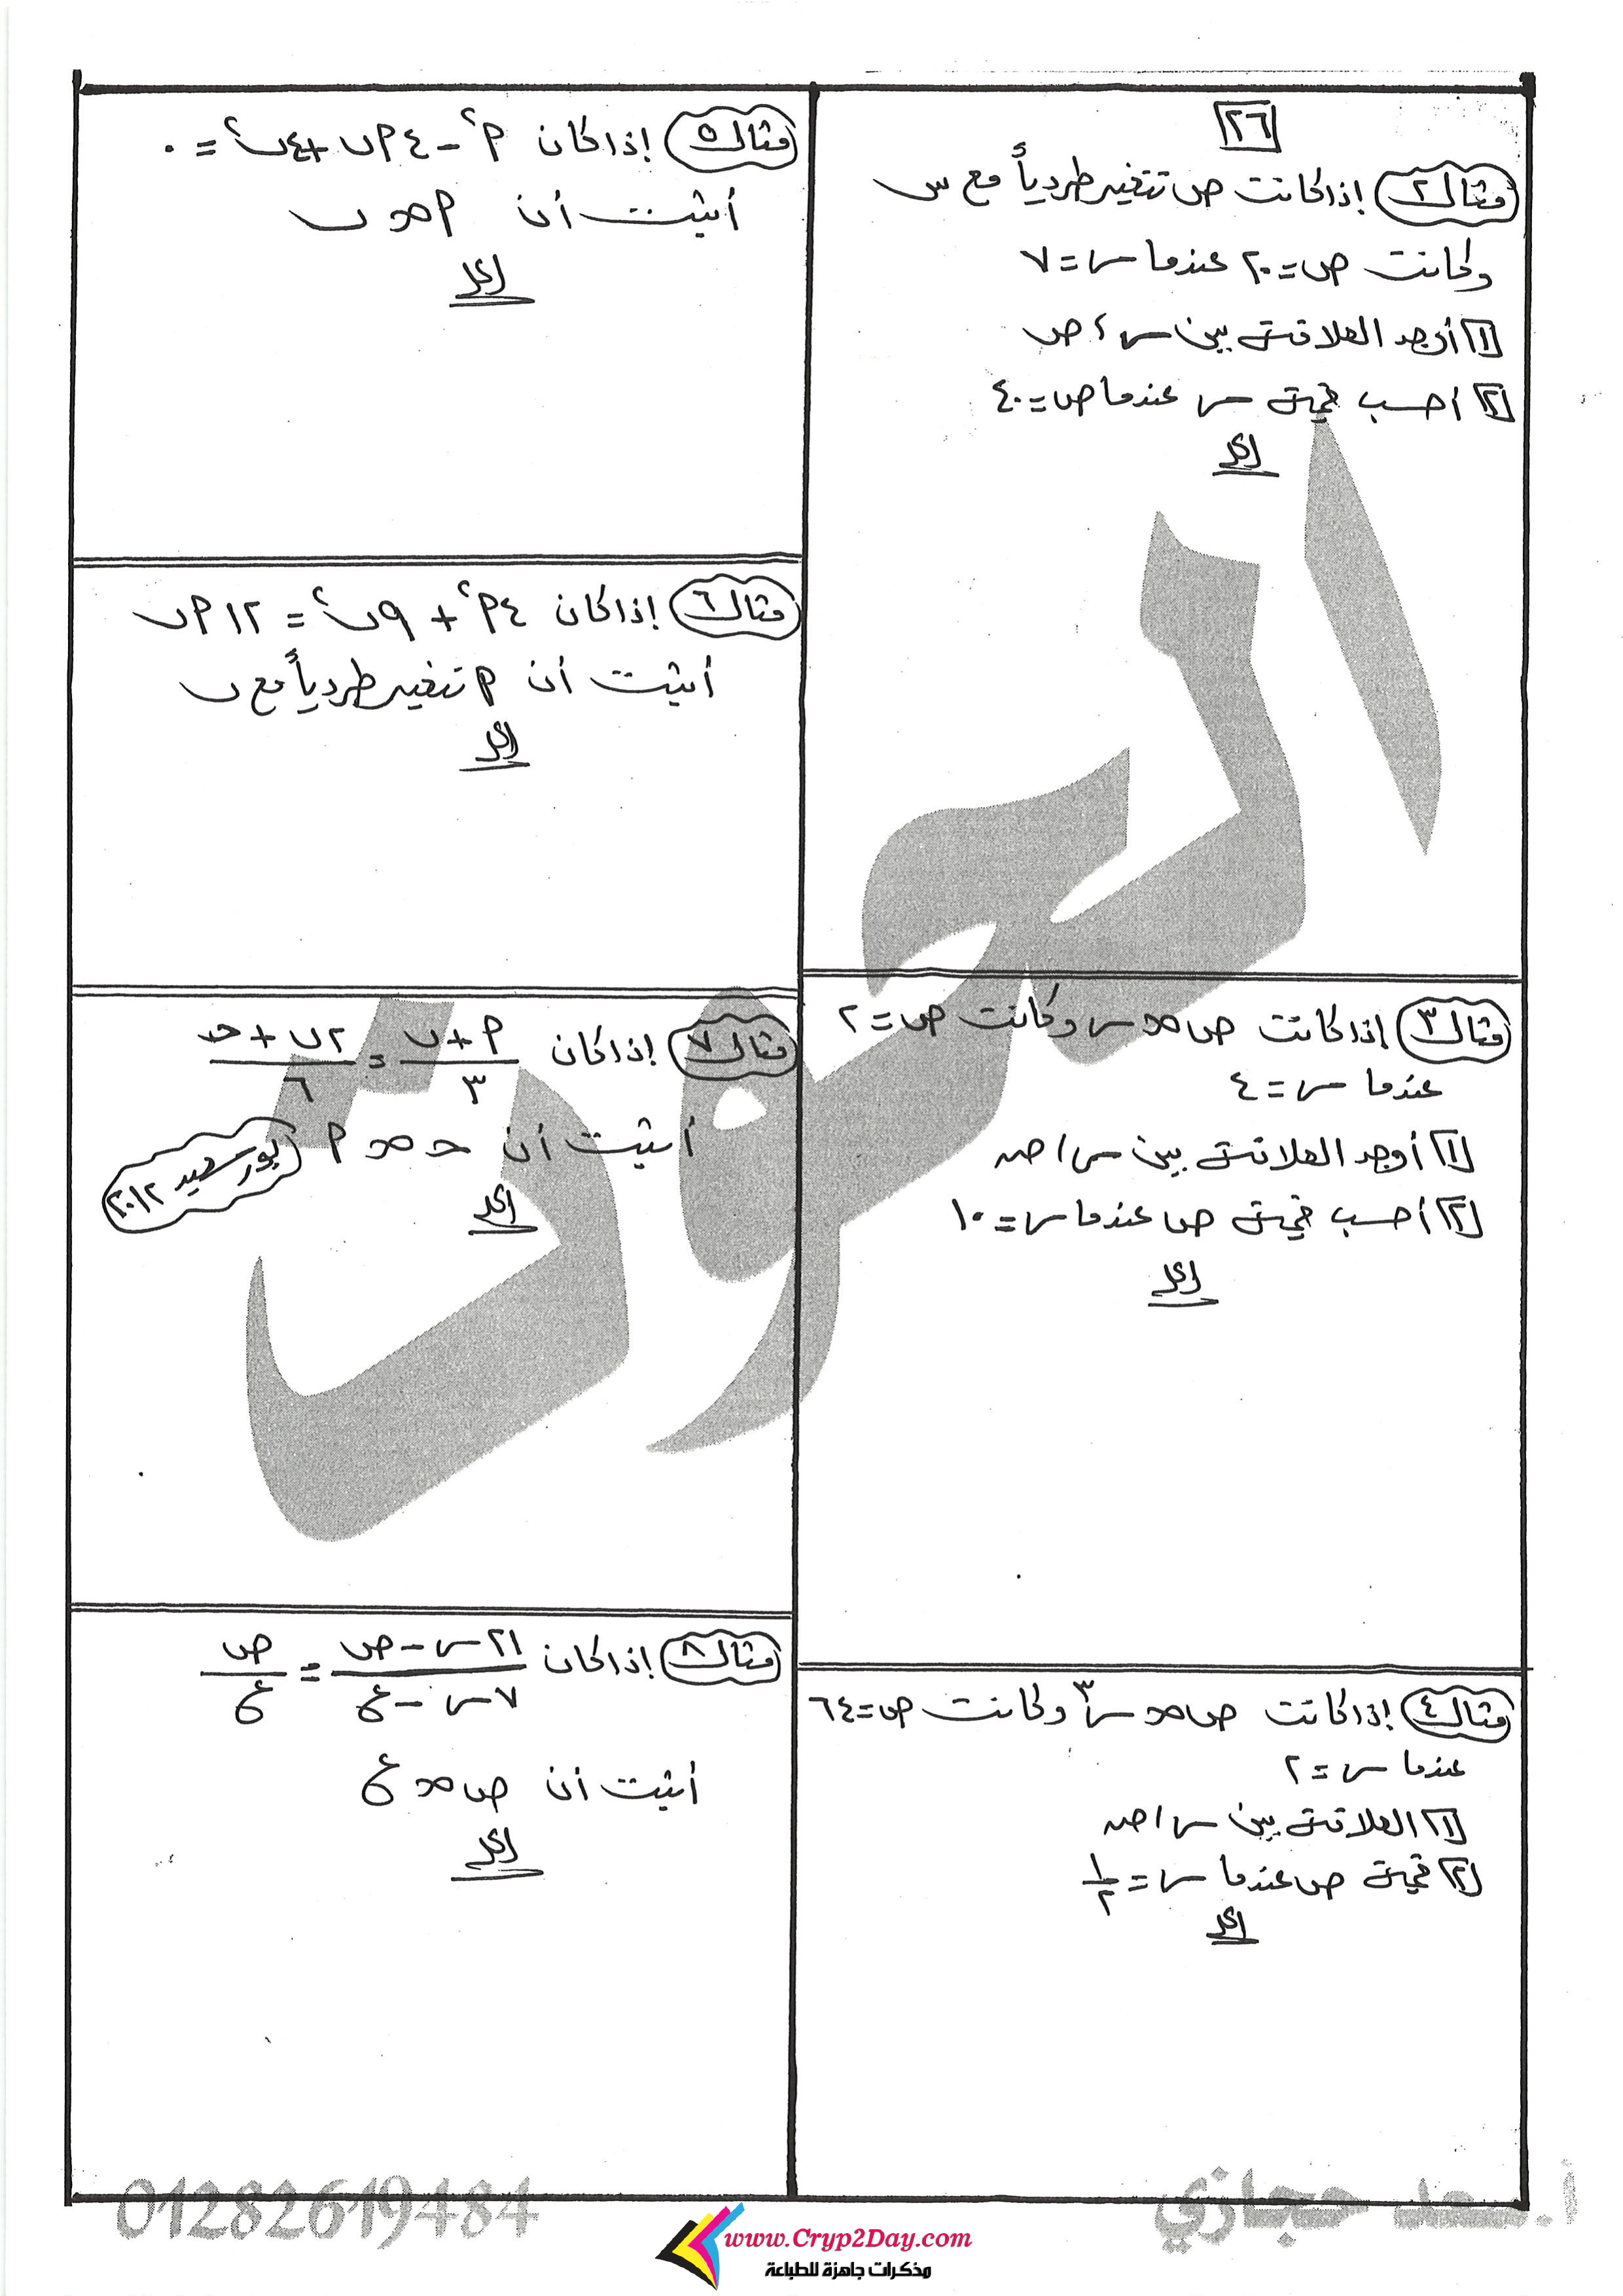 ٢٦
مثال ٢ إذا كانت ص تتغير طردياً مع س
وكانت ص = ٢٠ عندما س = ٧
١ أوجد العلاقة بين س ، ص
٢ احسب قيمة س عندما ص = ٤٠
الحل
مثال ٣ إذا كانت ص ∝ س وكانت ص = ٢
عندما س = ٤
١ أوجد العلاقة بين س ، ص
٢ احسب قيمة ص عندما س = ١٠
الحل
مثال ٤ إذا كانت ص ∝ س³ وكانت ص = ٦٤
عندما س = ٢
١ العلاقة بين س ، ص
٢ قيمة ص عندما س = ١/٢
الحل
مثال ٥ إذا كان م² - ٤ م ب + ٤ ب² = ٠
أثبت أن م ∝ ب
الحل
مثال ٦ إذا كان ٤ م² + ٩ ب² = ١٢ م ب
أثبت أن م تتغير طردياً مع ب
الحل
مثال ٧ إذا كان (م + ب)/٣ = (٢ ب + حـ)/٦
أثبت أن حـ ∝ م بور سعيد ٢٠١٢
الحل
مثال ٨ إذا كان (٢١ س - ص)/(٧ س - ع) = ص/ع
أثبت أن ص ∝ ع
الحل
العوض
01282619484
أ. محمد حجازي
www.Cryp2Day.com
مذكرات جاهزة للطباعة